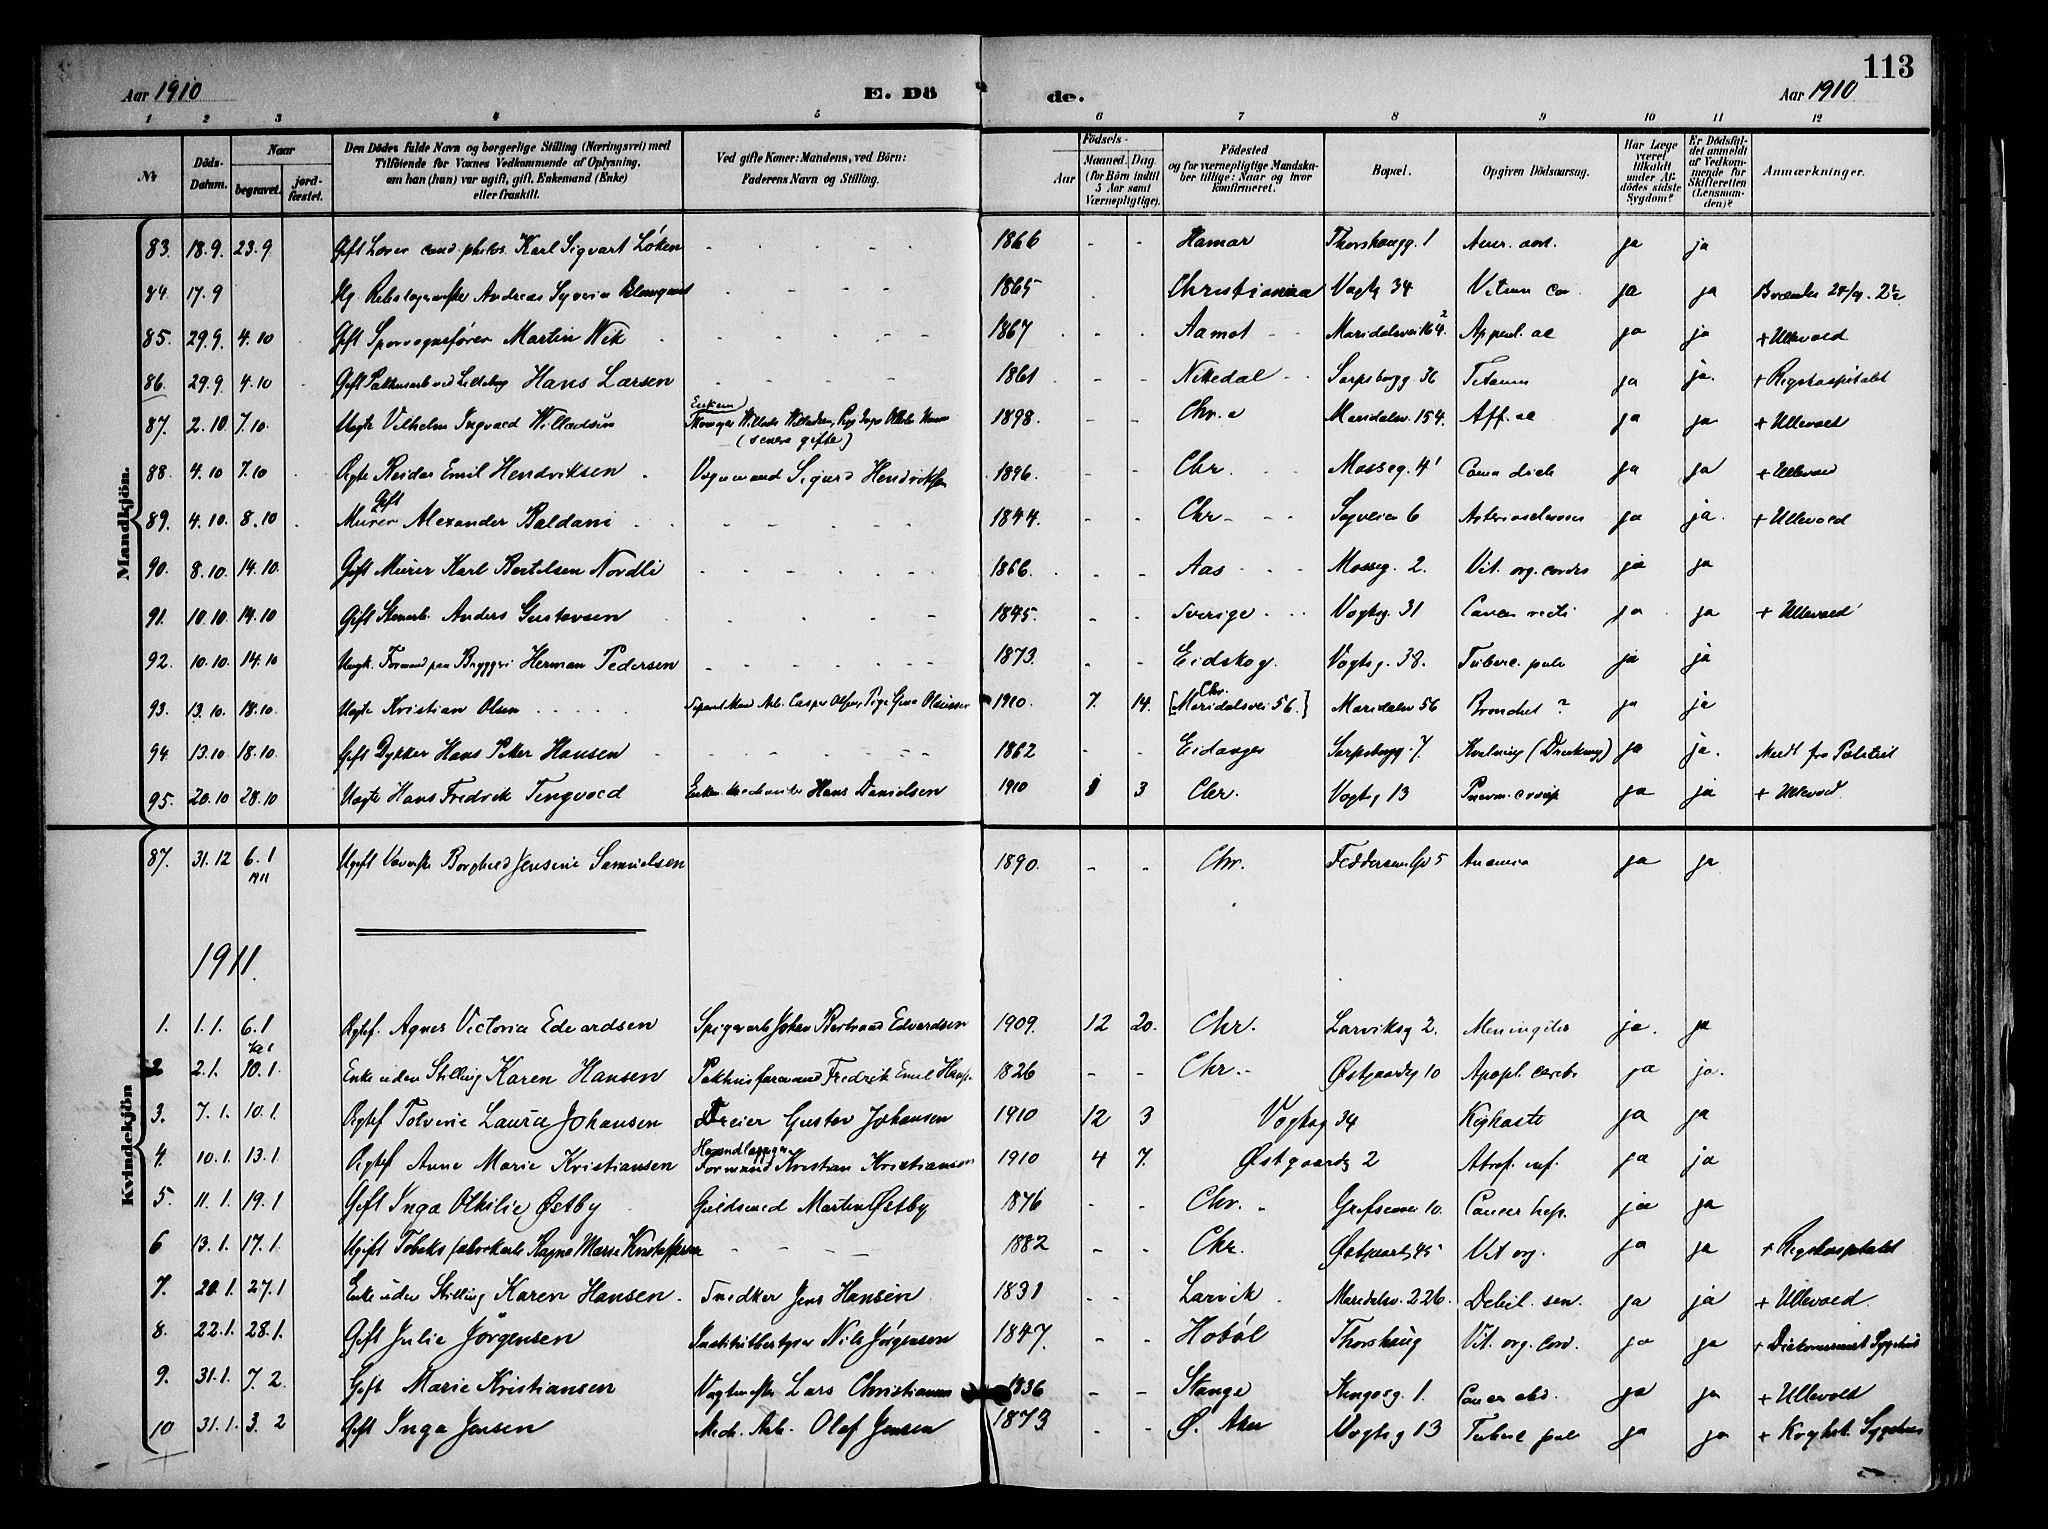 113
Aar 1910 E. Dö de. Aar 1910
1 2 3 4 5 6 7 8 9 10 11 12
№
Döds-Datum.
Naar
begravet.
jord-fæstet.
Den Dödes fulde Navn og borgerlige Stilling (Næringsvei) med
Tilföiende for Voxnes Vedkommende af Oplysning,
om han (hun) var ugift, gift, Enkemand (Enke)
eller fraskilt.
Ved gifte Koner: Mandens, ved Börn:
Faderens Navn og Stilling.
Födsels-
Aar
Maaned. Dag.
(for Börn indtil
5 Aar samt
Værnepligtige).
Födested
og for værnepligtige Mandska-
ber tillige: Naar og hvor
konfirmeret.
Bopæl.
Opgiven Dödsaarsag.
Har Læge
været
tilkaldt
under Af-
dödes sidste
Sygdom?
Er Dödsfal-
det anmeldt
af Vedkom-
mende for
Skifteretten
(Lensman-
den)?
Anmærkninger.
Mandkjön.
83. 18.9. 23.9 Gift cand. philos. Karl Sigvart Löken - 1866 - - Hamar Thorshaugg. 1 ja ja
17.9 Andreas 1865 Christiania Vogtg 34 Vitium cor. ja ja
85. 29.9. 4.10 Gift Sporvognsförer Martin Wik 1867 - - Aamot Maridalsvei 164² ja ja + Ullevold
86. 29.9 4.10 Gift Hans Larsen 1861 - - Nittedal Sarpsborgg. 36 Tetanus ja ja. + Rigshospitalet
87. 2.10 7.10 Uægte Vilhelm Ingvald Willadsen Enkem. (senere gifte) 1898. - - Chr.a Maridalsv. 154. ja ja + Ullevold
88. 4.10 7.10 Ægte Reidar Emil Hendriksen Vognmand Sigurd Hendriksen 1896. - - Chr. Mosseg. 4¹ Coma diab ja ja + Ullevold
89. 4.10. 8.10 Gift Murer Alexander Baldani 1844. - - Chr Sagveien 6 ja ja. + Ullevold
90. 8.10 14.10 Gift Murer Karl Bertelsen Nordli 1866. - - Aas Mosseg. 2. Vit. org. cordis ja ja
91. 10.10 14.10 Gift Stenarb. Anders Gustavsen 1845. - - Sverige Vogtsg. 31 Cancer recti ja ja + Ullevold
92. 10.10. 14.10 Ungk. Formand paa Bryggeri Herman Pedersen 1873. - - Eidskog. Vogtsg. 38. Tuberc. pulm ja ja
93. 13.10. 18.10. Uægte Kristian Olsen Arb. Casper Olsen, Pige 1910. 7. 14. Chr. [Maridalsvei 56.] Maridalsv 56 Bronchit ? ja ja
94. 13.10 18.10. Gift Dykker Hans Peter Hansen 1862 - - Eidanger Sarpsborgg. 7. Kvælning (Drukning) ja ja. Medt fra Politiet
95. 20.10 28.10 Uægte Hans Fredrik Tingvold Enkem. Hans Danielsen 1910 3 Chr. Vogtsg 13 ja ja + Ullevold.
Kvindekjön
87. 31.12 6.1 1911 Ugift Borghild Jensine Samuelsen 1890. - - Chr. Feddersens Gd 5 Anæmia ja ja
1911.
1. 1.1. 6.1 Ægtef. Agnes Victoria Edvardsen Spigerarb Johan Bertrand Edvardsen 1909. 12 20. Chr. Larviksg 2. Meningitis ja. ja
2 2.1. 10.1. Enke uden Stilling Karen Hansen Pakhusformand Fredrik Emil Hansen 1826 - - Chr. Østgaardsg 10 Apopl. cerebr ja ja.
3. 7.1. 10.1. Ægtef Laura Johansen Dreier Gustav Johansen 1910 12 3 Vogtsg 34 Kighoste ja ja
4. 10.1. 13.1. Ægtef. Anne Marie Kristiansen Formand Kristian Kristiansen 1910 4 7. Østgaardsg 2 Atrof. inf. ja ja
5. 11.1. 19.1 Gift Inga Othilie Østby Guldsmed Martin Østby 1876 - - Chr. Grefsenvei 10. Cancer hep. ja ja
6 13.1. 17.1. Ugift Tobaksfabrikarb Ragna Marie Kristoffersen 1882 - - Chr. Østgaardsg 45 Vit org. ja ja + Rigshospitalet
7. 20.1. 27.1 Enke uden Stilling Karen Hansen. Snedker Jens Hansen 1831 - - Larvik Maridalsv. 226. Debil. sen. ja ja + Ullevold.
8. 22.1. 28.1. Gift Julie Jörgensen Institutbestyrer Nils Jörgensen 1847. - - Hoböl Thorshaug Vit. org. cord. ja ja + Diakonisse Sygehus
9. 31.1. 7.2. Gift Marie Kristiansen Vagtmester Lars Christiansen 1836 - - Stange Kingosg. 1. Cancer abd. ja ja + Ullevold
10 31.1. 3.2 Gift Inga Jensen Mech. Arb. Olaf Jensen 1873 - - Ø. Aker Vogtsg 13 Tuberc pulm ja ja +